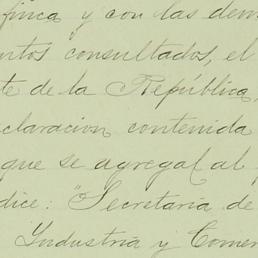 finca y con las dem
ntos consultados, el
te de la República,
claracion contenida
que se agregal al
dice: "Secretaría de
Industria y Comer